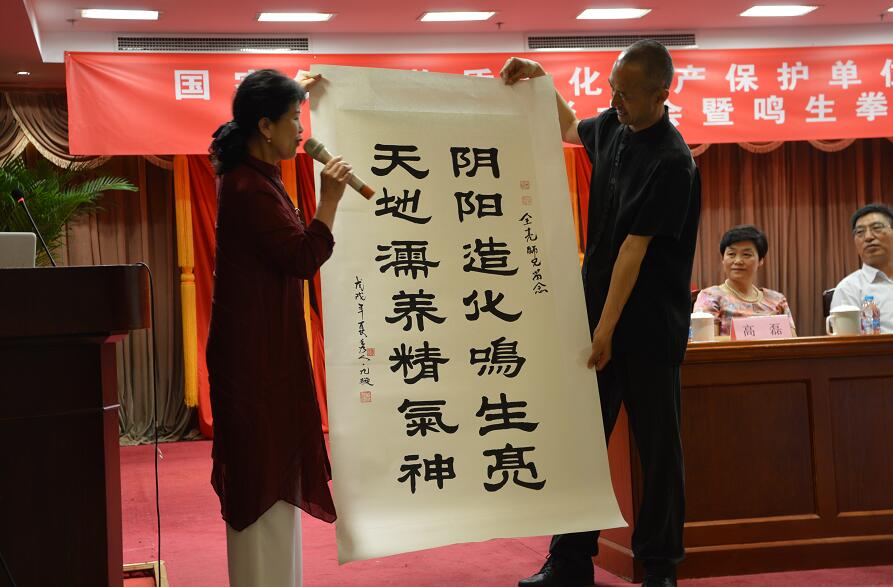 国家
化
产保护单位
会暨鸣生拳
全亮師兄留念
阴阳造化鳴生亮
天地濡养精氣神
戊戌年夏
高磊